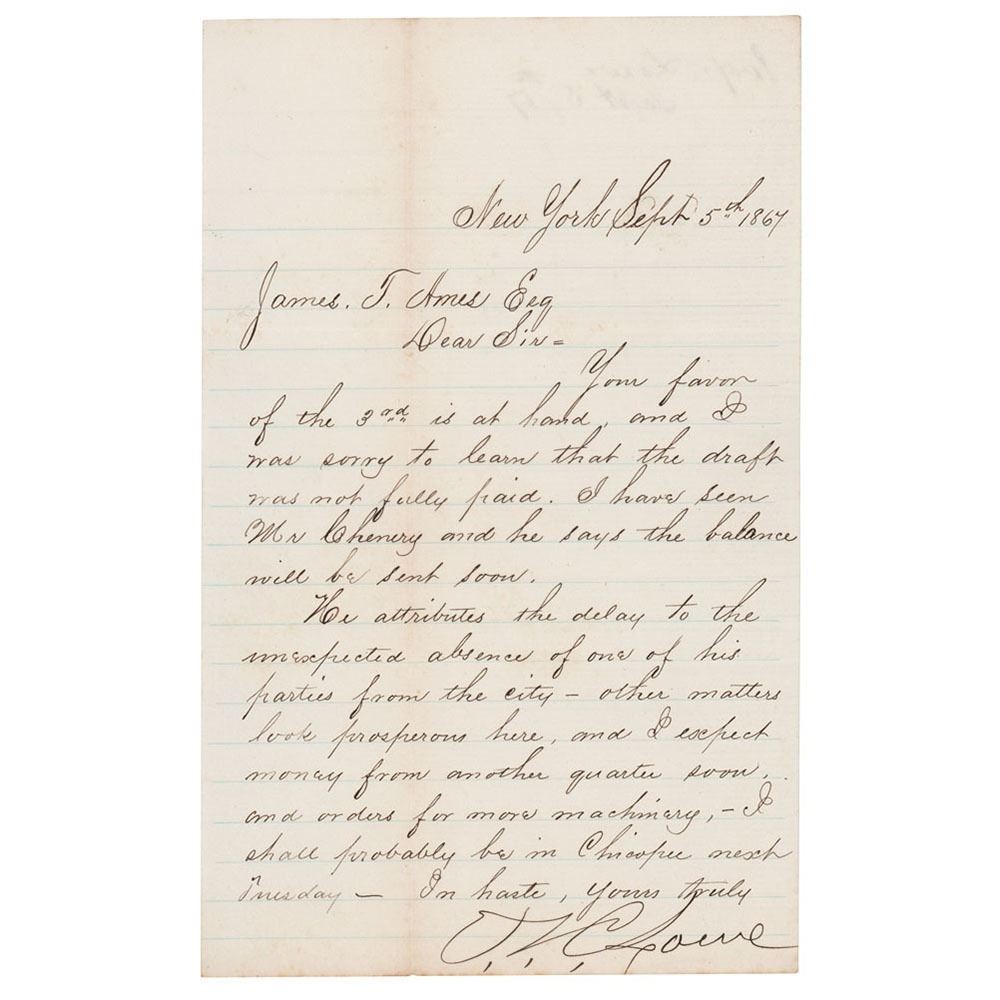 New York Sept 5th 1867
James. T. Ames Esq
Dear Sir =
Your favor
of the 3rd is at hand, and I
was sorry to learn that the draft
was not fully paid. I have seen
Mr Chenery and he says the balance
will be sent soon.
He attributes the delay to the
unexpected absence of one of his
parties from the city – other matters
look prosperous here, and I expect
money from another quarter soon,
and orders for more machinery, – I
shall probably be in Chicopee next
Tuesday – In haste, yours truly
T. S. C. Lowe